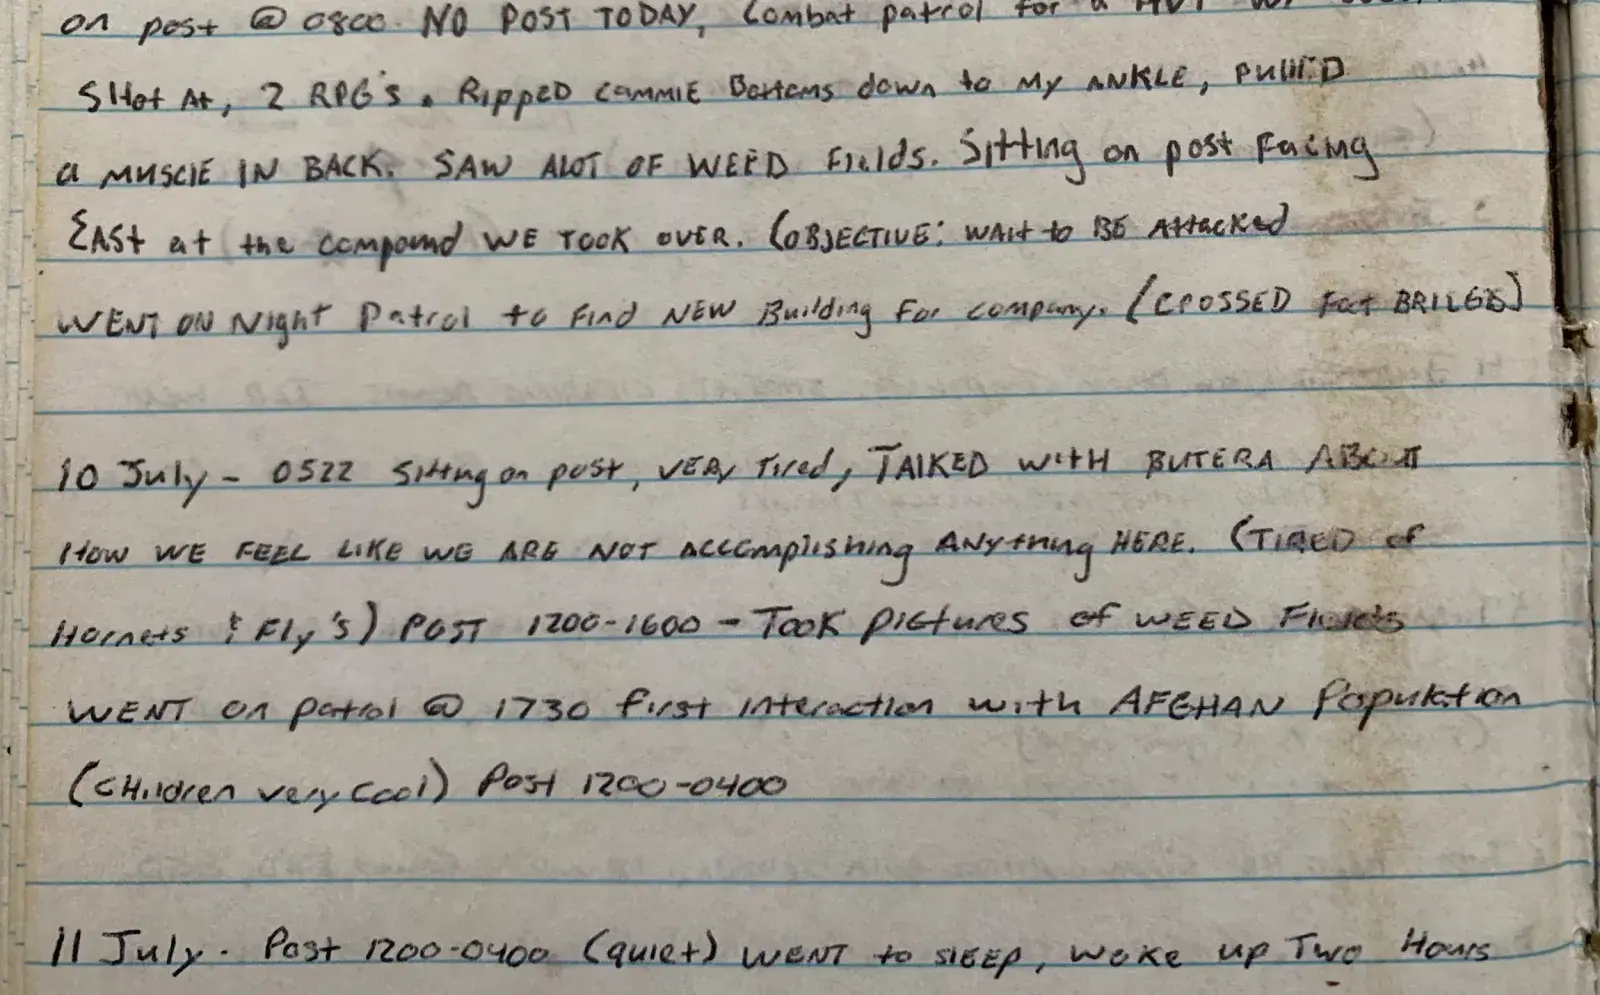 on post @ 0800. NO POST TODAY, Combat patrol for a
SHot At, 2 RPG's. RippED cammIE Bottoms down to My ANKLE, pullED
a muscle IN BACK. SAW ALOT OF WEED Fields. Sitting on post Facing
EASt at the compound WE TOOK OVER. (OBJECTIVE: WAit to BE AttackEd
WENT ON Night Patrol to Find NEW Building For company. (CROSSED Foot BRIDGE)
10 July - 0522 Sitting on post, VERy Tired, TAlKED WitH BUTERA ABOUT
How WE FEEL LIKE WE ARE NOT ACComplishing ANything HERE. (TIRED of
Hornets & Fly's) POST 1200-1600 - Took Pictures of WEED Fields
WENT on patrol @ 1730 first interaction with AFGHAN Population
(CHildren very Cool) Post 1200-0400
11 July. Post 1200-0400 (quiet) WENT to SlEEp, woke up Two Hours